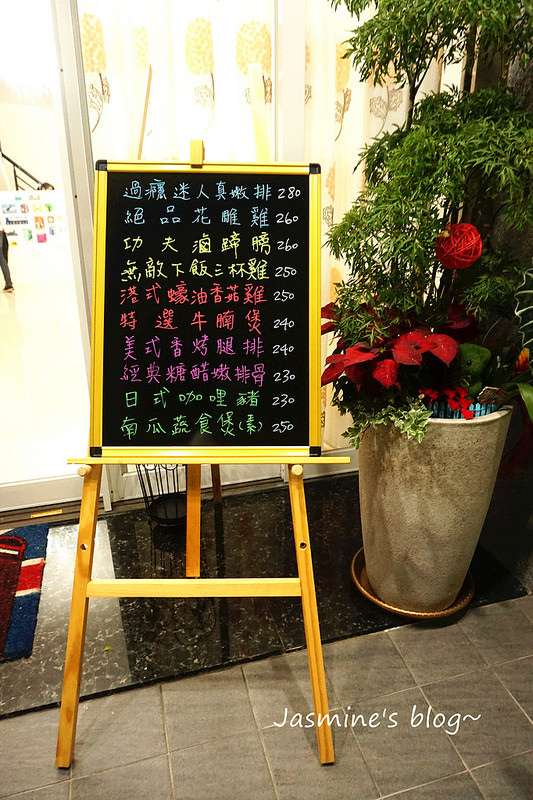 過癮迷人真嫩排 280
絕品花雕雞 260
功夫滷蹄膀 260
無敵下飯三杯雞 250
港式蠔油香菇雞 250
特選牛腩煲 240
美式香烤腿排 240
經典糖醋嫩排骨 230
日式咖哩豬 230
南瓜蔬食煲(素) 250
Jasmine's blog~